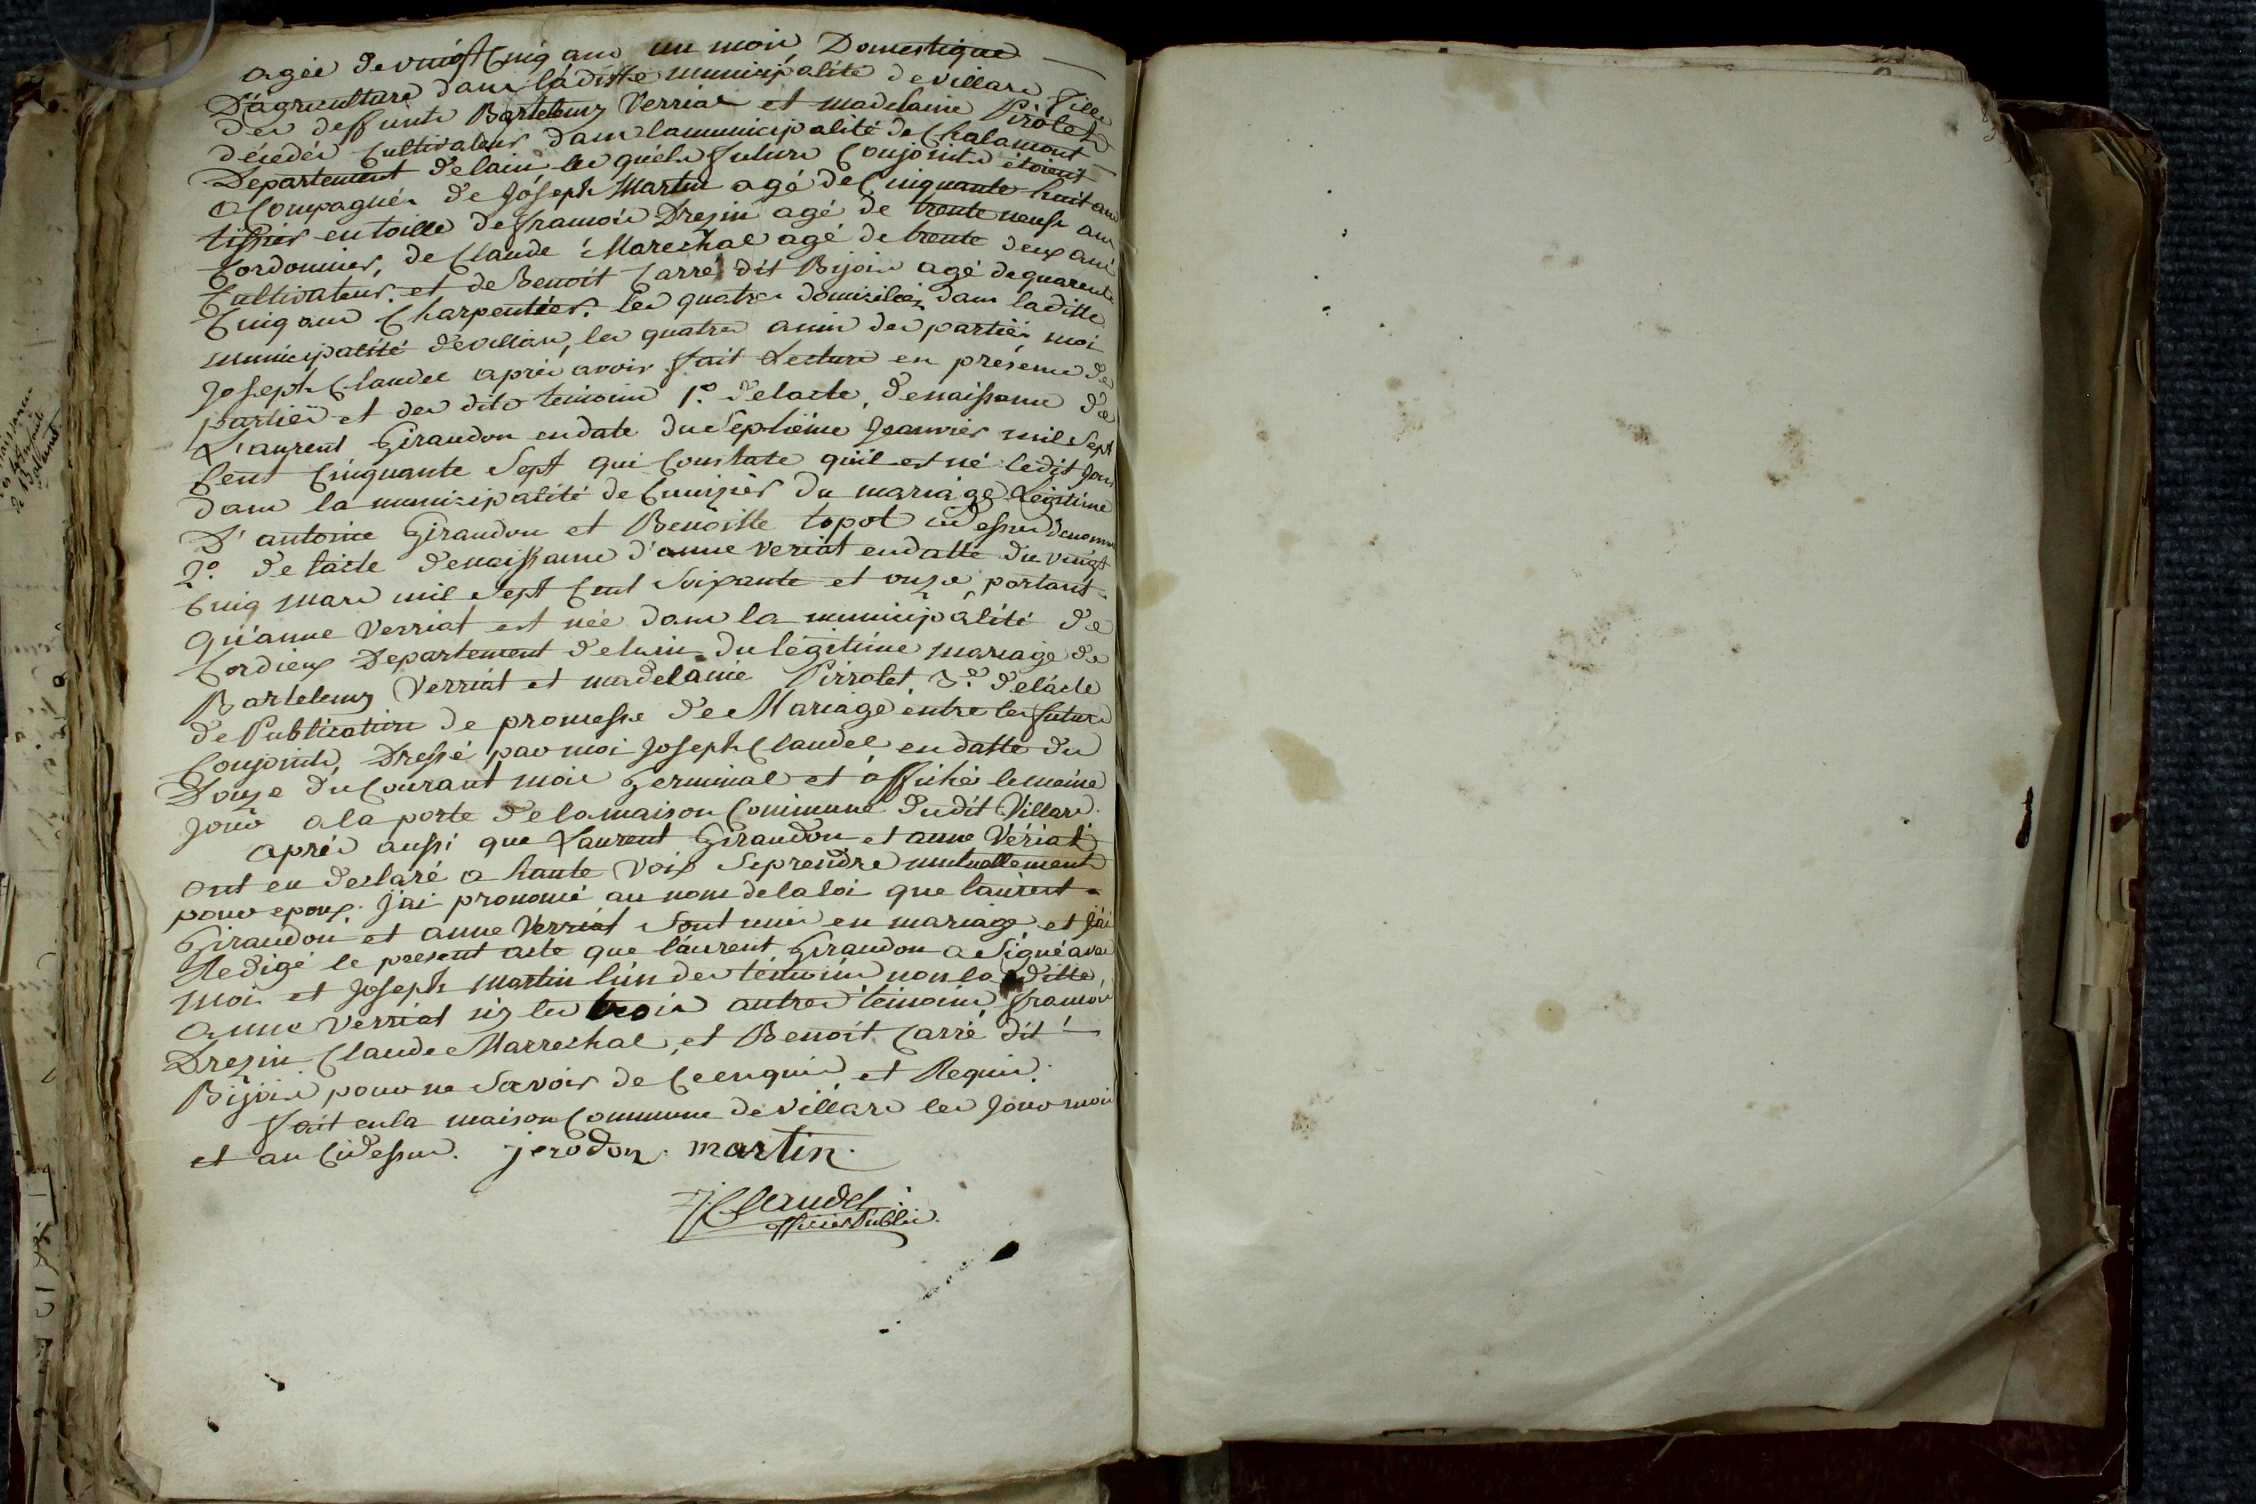 agée de vingt cinq ans un mois, Domestique
D'agriculture dans la ditte municipalité de villars fille
des deffunts Bartelemy Verriat et madelaine Pirolet
décedés Cultivateurs dans la municipalité de Chalamont
Departement de lain, les quels futurs Conjoints étoient
acompagnés de Joseph Martin agé de Cinquante huit ans
tissier en toille de francois Drezin agé de trente neuf ans
Cordonnier, de Claude Mareschal agé de trente deux ans
Cultivateur, et de Benoit Carré dit Bijoin agé de quarente
Cinq ans Charpentier. les quatres domiciliés dans laditte
municipalité de villars, les quatres amis des parties, moi
Joseph Claudel aprés avoir fait Lecture en présence des
parties et des dits temoins 1.º de lacte, de naissance de
Laurent Giraudon en date du Septiéme Janvier mil Sept
Cent Cinquante Sept qui Constate qu'il est né ledit jour
dans la municipalité de du mariage Légitime
D'antoine Giraudon et Benoitte topot ci dessus dénommé
2.º de lacte de naissance d'anne veriat en datte du vingt
Cinq mars mil Sept Cent Soixante et onze, portant
Qu'anne Verriat est née dans la municipalité de
Cordieux Departement de lain du légitime mariage de
Bartelemy Verriat et madelaine Pirrolet, 3.º de lácte
de Publication de promesse de Mariage entre les futurs
Conjoints, Dressé par moi Joseph Claudel en datte du
Douze du Courant mois Germinal et affiché le meme
Jour a la porte de la maison Commune dudit Villars.
aprés aussi que Laurent Giraudon et anne Vériat
ont eu declaré a haute voix Seprendre mutuellement
pour epoux. J'ai prononcé au nom de la loi que laurent
Giraudon et anne Verriat Sont unis en mariage, et j'ai
Redigé le present acte que laurent Giraudon a Signé avec
moi et Joseph Martin l'un des témoins non la ditte
anne Verriat ny les trois autres témoins, francois
Drezin Claude Marreshal, et Benoit Carré dit
Bijoin pour ne Savoir de Ce enquis et Requis.
fait en la maison Commune de Villars les Jour mois
et an Cidessus. jerodon. martin.
J Claudel
officier Public.